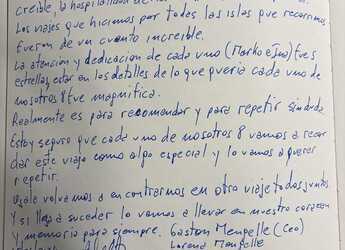 creible, la hospitalidad de
Los viajes que hicimos por todas las islas que recorrimos
fueron de un cuento increible.
La atención y dedicación de cada uno (Marko e Ina) fue 5
estrellas, estar en los detalles de lo que queria cada uno de
nosotros 8 fue magnifica.
Realmente es para recomendar y para repetir sin duda
Estoy seguro que cada uno de nosotros 8 vamos a recor
dar este viaje como algo especial y lo vamos a querer
repetir.
Ojala volvamos a encontrarnos en otro viaje todos juntos
Y si llega a suceder lo vamos a llevar en nuestro corazon
y memoria para siempre. Gaston Menpelle (Ceo)
Lorena Menpelle